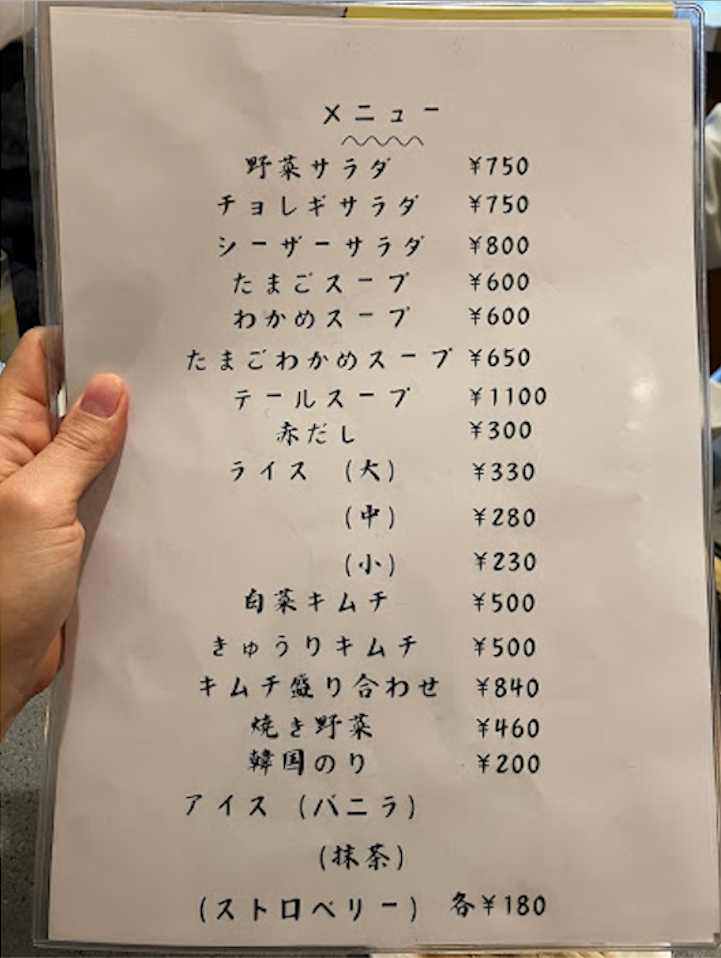 メニュー
野菜サラダ ¥750
チョレギサラダ ¥750
シーザーサラダ ¥800
たまごスープ ¥600
わかめスープ ¥600
たまごわかめスープ ¥650
テールスープ ¥1100
赤だし ¥300
ライス (大) ¥330
(中) ¥280
(小) ¥230
白菜キムチ ¥500
きゅうりキムチ ¥500
キムチ盛り合わせ ¥840
焼き野菜 ¥460
韓国のり ¥200
アイス (バニラ)
(抹茶)
(ストロベリー) 各¥180